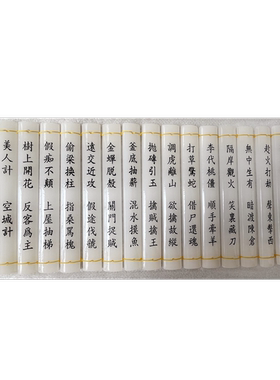 趁火打劫 聲東擊西
無中生有 暗渡陳倉
隔岸觀火 笑裏藏刀
李代桃僵 順手牽羊
打草驚蛇 借尸還魂
調虎離山 欲擒故縱
拋磚引玉 擒賊擒王
釜底抽薪 混水摸魚
金蟬脫殼 關門捉賊
遠交近攻 假途伐虢
偷梁換柱 指桑罵槐
假痴不癲 上屋抽梯
樹上開花 反客爲主
美人計 空城計